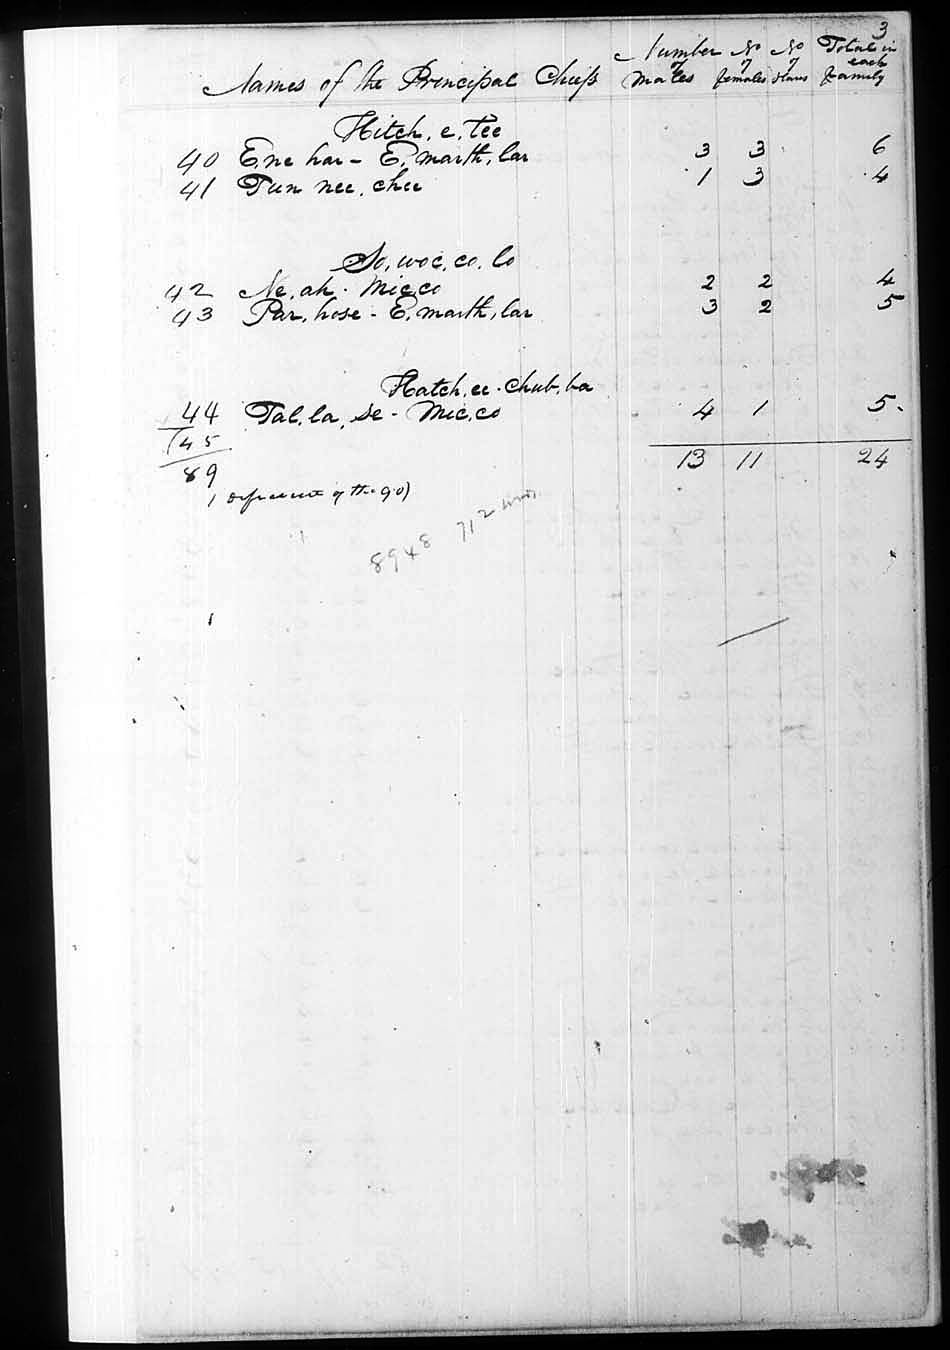 3
Names of the Principal Chiefs Number of Males No of females No of Slaves Total in each family
Hitch, e, tee
40 E,ne har - E, marth, lar 3 3 6
41 Tun nee, chee 1 3 4
So, woc, co, lo
42 Ne, ah - Mic,co 2 2 4
43 Par, hose - E, marth, lar 3 2 5
Hatch, ee - chub, ba
44 Tal, la, se - Mic, co 4 1 5
45 13 11 24
89
1 of the 90)
8948 712